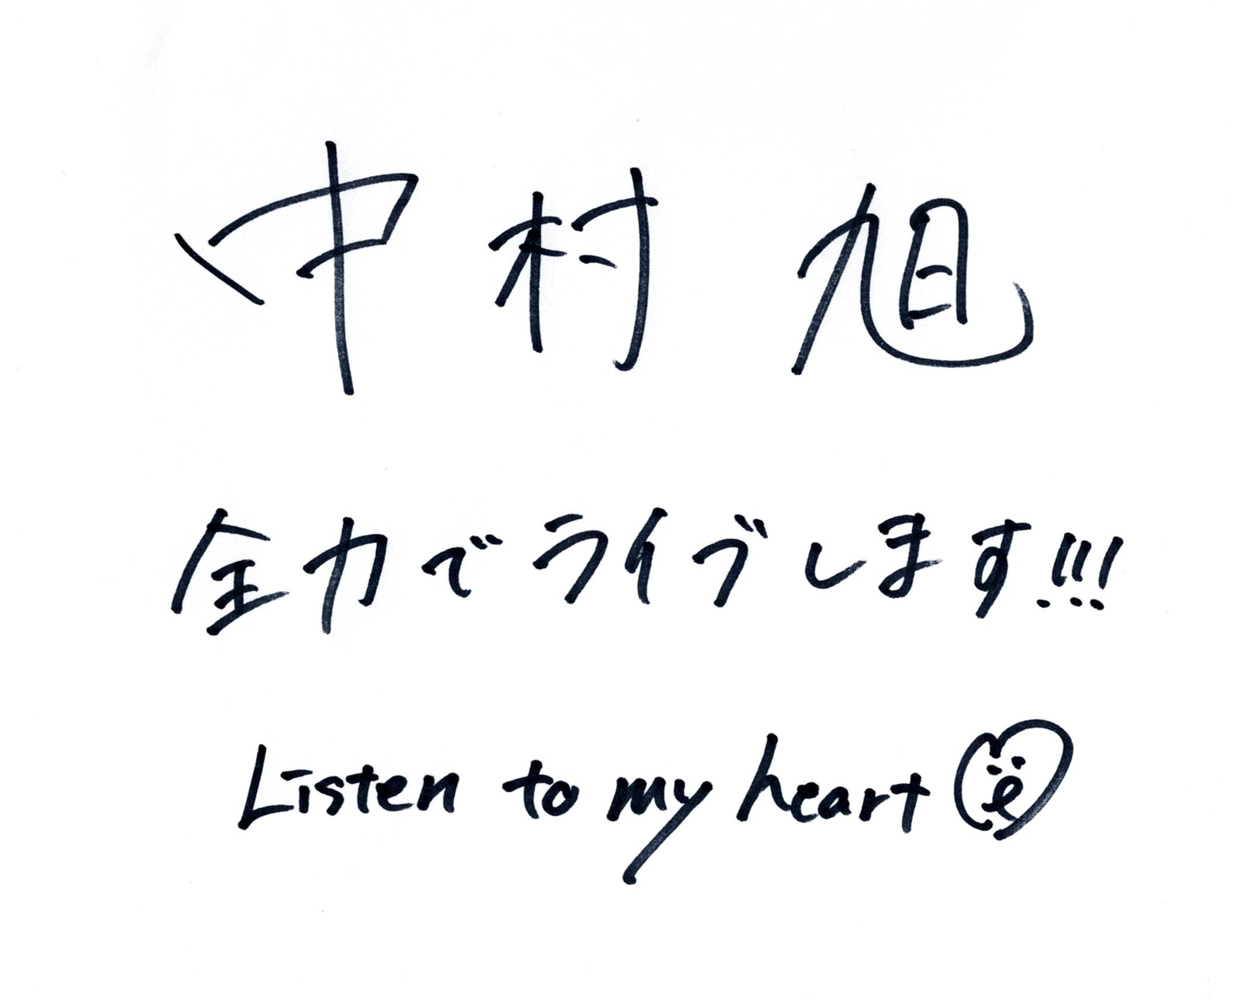 中村 旭
全力でライブします!!!
Listen to my heart